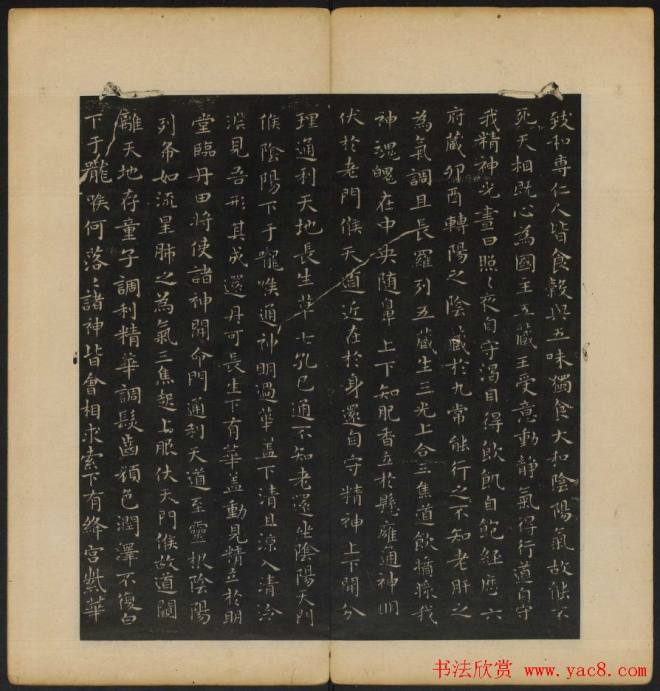 致和專仁人皆食穀與五味獨食大和陰陽氣故能不
死天相既心為國主五蔵王受意動静氣得行道自守
我精神光晝日照〻夜自守渇自得飲飢自飽經歴六
府蔵卯酉轉陽之陰蔵於九常能行之不知老肝之
為氣調且長羅列五蔵生三光上合三焦道飲醬漿我
神魂魄在中央随鼻上下知肥香立於懸雍通神明
伏於老門候天道近在於身還自守精神上下開分
理通利天地長生草七孔已通不知老還坐陰陽天門
候陰陽下于嚨喉通神明過華盖下清且涼入清泠
淵見吾形其成還丹可長生下有華盖動見精立於明
堂臨丹田将使諸神開命門通利天道至靈根陰陽
列布如流星肺之為氣三焦起上服伏天門候故道闚
離天地存童子調利精華調髮齒顔色潤澤不復白
下于嚨喉何落〻諸神皆會相求索下有絳宫紫華
书法欣赏 www.yac8.com